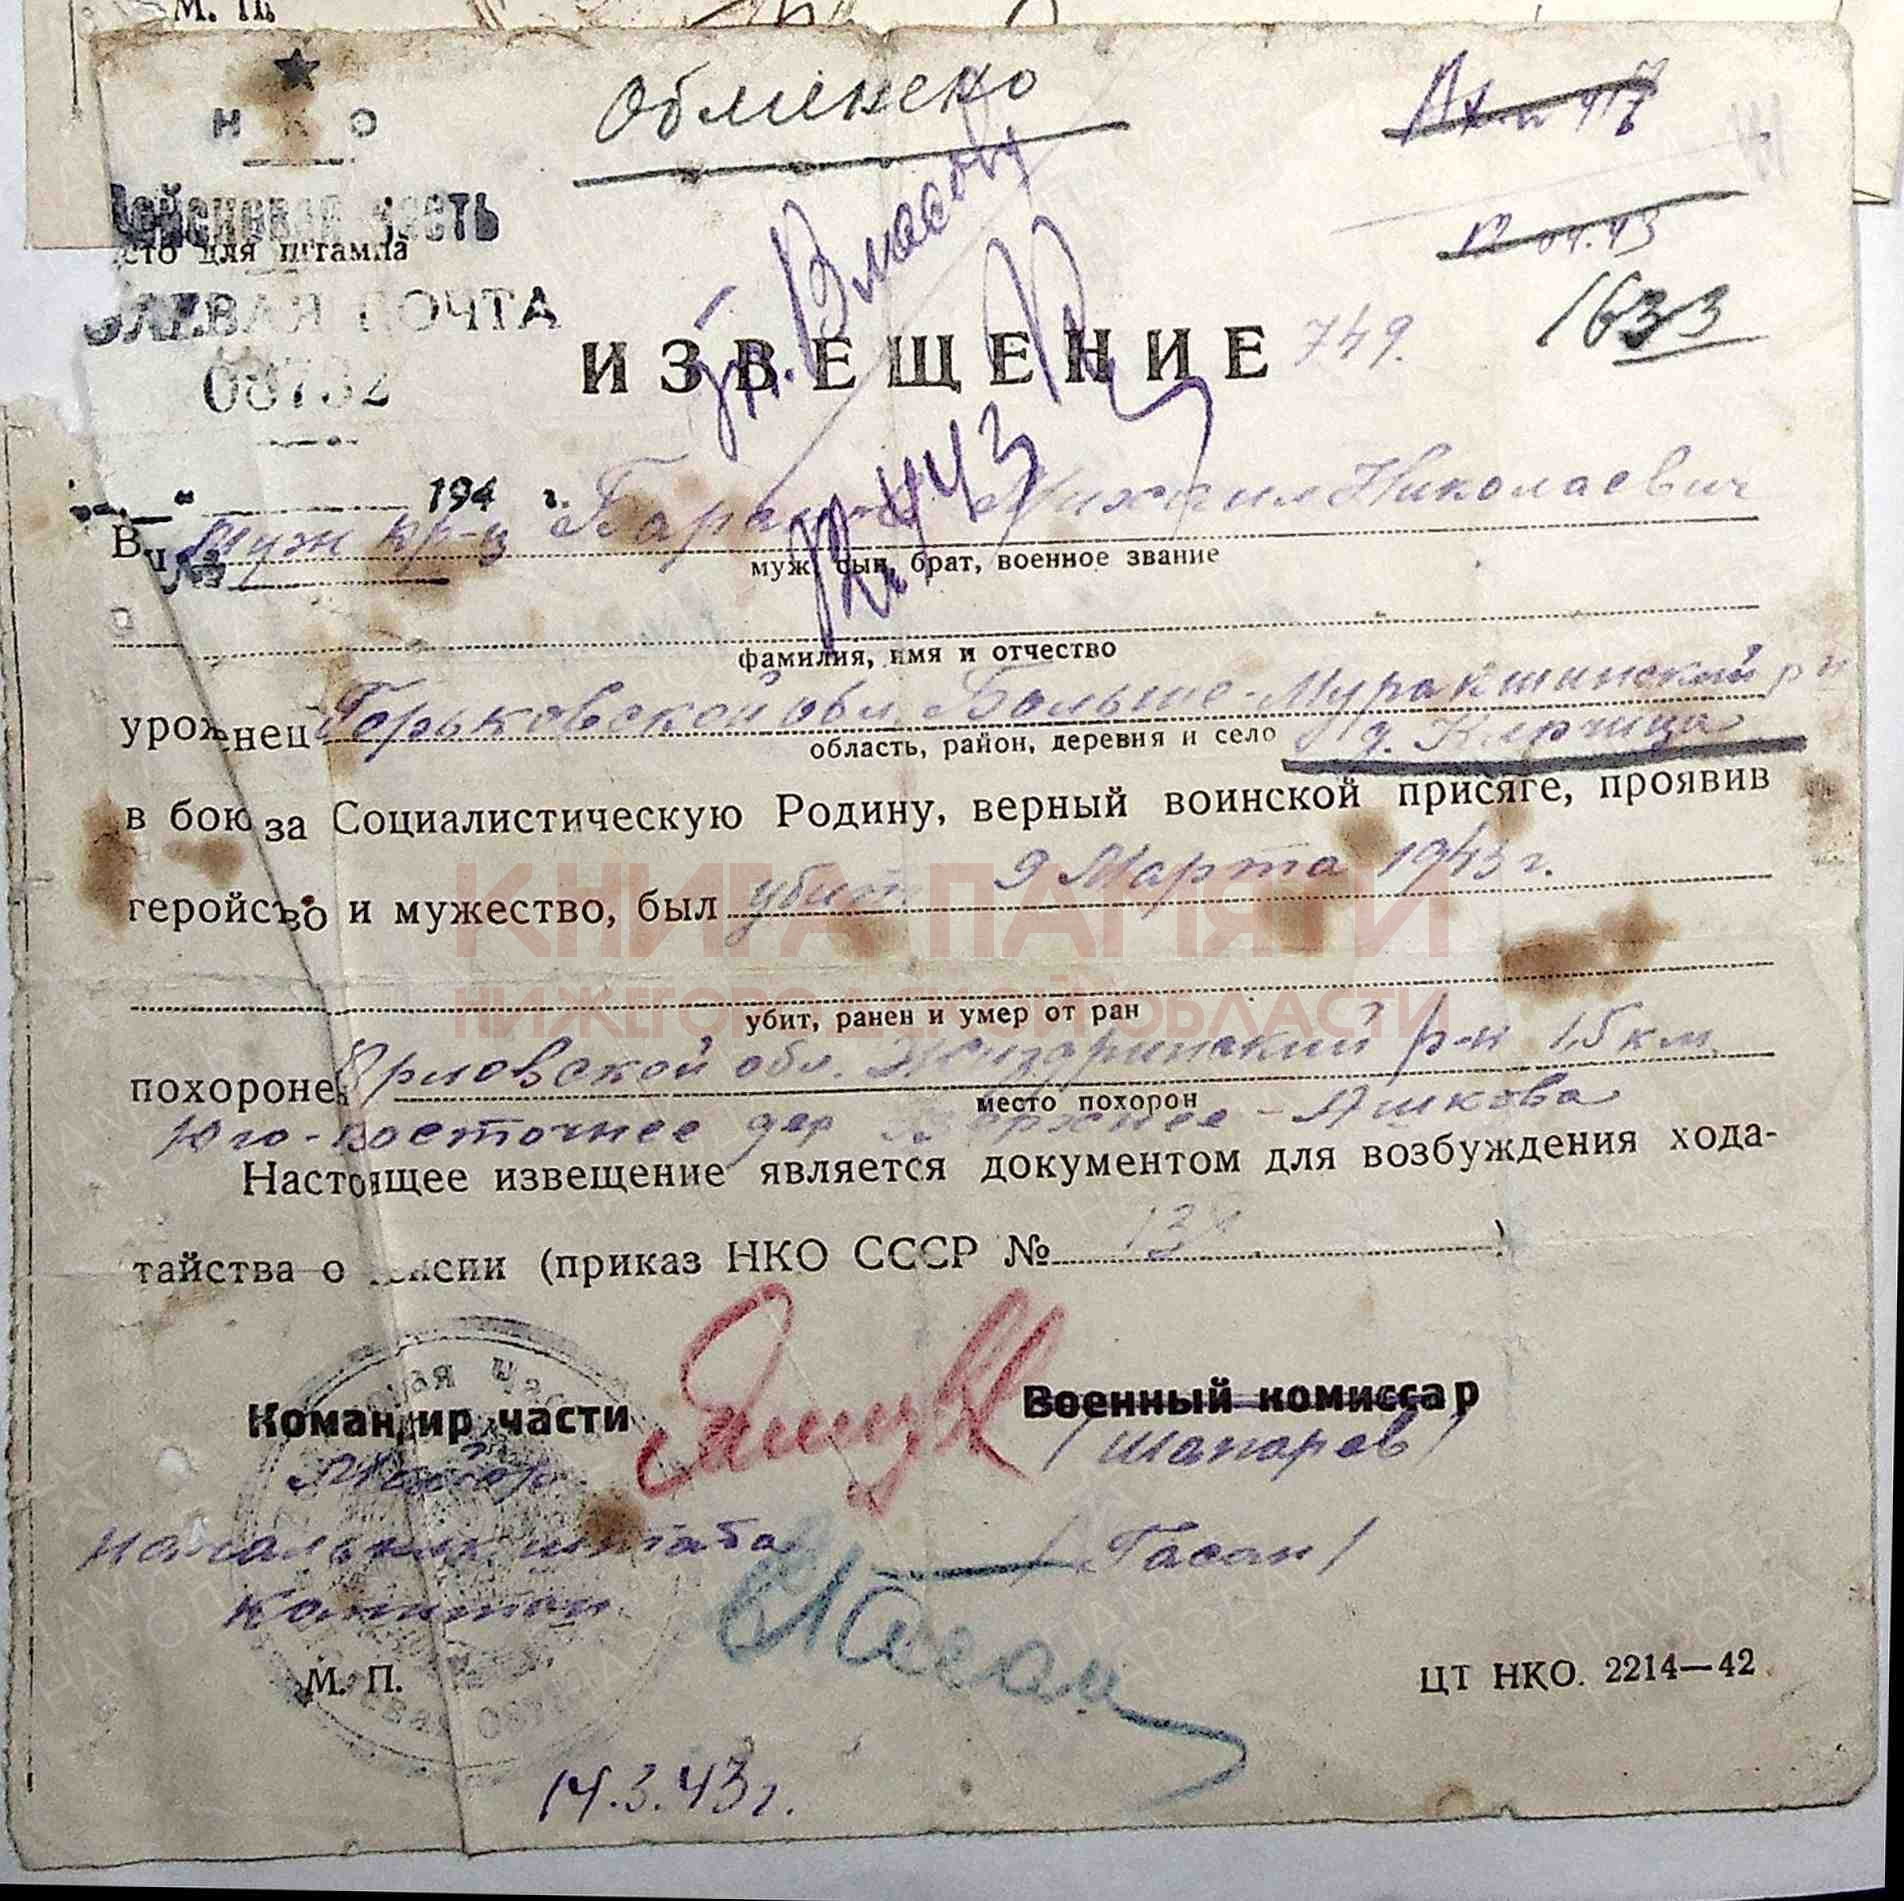 М. П.
Н К О
Обменено
Войсковая часть
место для штампа
ПОЛЕВАЯ ПОЧТА
08732
зн. Власову
12.04.43
1633
ИЗВЕЩЕНИЕ 749.
12.4.43
194 г.
муж кр-ц Михаил Николаевич
муж, сын, брат, военное звание
фамилия, имя и отчество
уроженец Горьковской обл. Больше-Муракшинский р-н
область, район, деревня и село
д. Кирчища
в бою за Социалистическую Родину, верный воинской присяге, проявив
геройство и мужество, был убит 9 Марта 1943 г.
КНИГА ПАМЯТИ
НИЖЕГОРОДСКОЙ ОБЛАСТИ
убит, ранен и умер от ран
похоронен Орловской обл. Жиздринский р-н 1,5 км
место похорон
Юго-восточнее дер Верхнее-Ашкова
Настоящее извещение является документом для возбуждения хода-
тайства о пенсии (приказ НКО СССР № )
Командир части Военный комиссар
Майор / Шапарев /
Начальник штаба / Гасан /
Капитан
М. П.
ЦТ НКО. 2214—42
14.3.43 г.